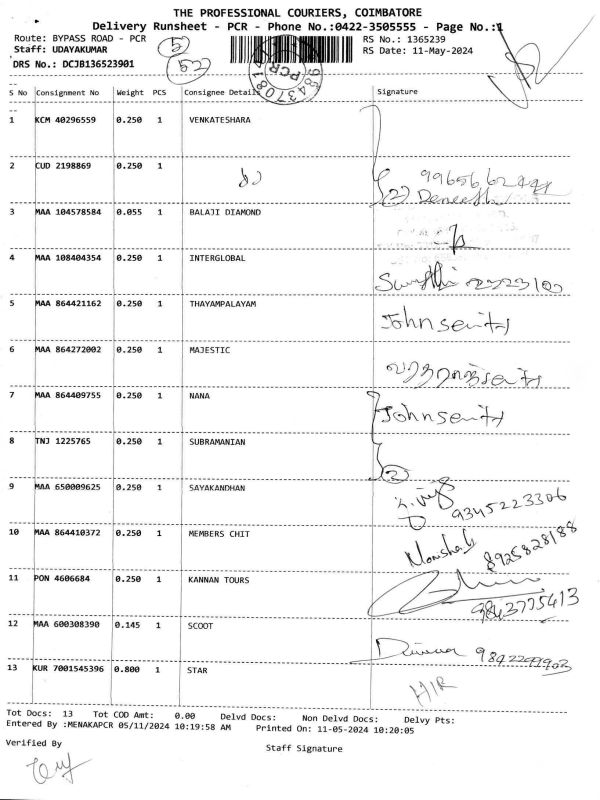 THE PROFESSIONAL COURIERS, COIMBATORE
Delivery Runsheet - PCR - Phone No.:0422-3505555 - Page No.:1
Route: BYPASS ROAD - PCR
RS No.: 1365239
Staff: UDAYAKUMAR
RS Date: 11-May-2024
DRS No.: DCJB136523901
5
52
PCR
S No Consignment No Weight PCS Consignee Details Signature
1 KCM 40296559 0.250 1 VENKATESHARA
2 CUD 2198869 0.250 1
2
3 MAA 104578584 0.055 1 BALAJI DIAMOND
4 MAA 108404354 0.250 1 INTERGLOBAL
5 MAA 864421162 0.250 1 THAYAMPALAYAM
Johnsen
6 MAA 864272002 0.250 1 MAJESTIC
7 MAA 864409755 0.250 1 NANA
Johnsen
8 TNJ 1225765 0.250 1 SUBRAMANIAN
2
9 MAA 650009625 0.250 1 SAYAKANDHAN
9345223306
10 MAA 864410372 0.250 1 MEMBERS CHIT
8925828188
11 PON 4606684 0.250 1 KANNAN TOURS
9843775413
12 MAA 600308390 0.145 1 SCOOT
13 KUR 7001545396 0.800 1 STAR
H/R
Tot Docs: 13 Tot COD Amt: 0.00 Delvd Docs: Non Delvd Docs: Delvy Pts:
Entered By :MENAKAPCR 05/11/2024 10:19:58 AM Printed On: 11-05-2024 10:20:05
Verified By
Staff Signature